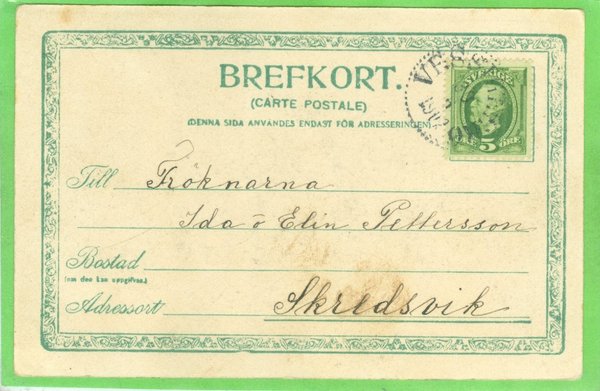 BREFKORT.
(CARTE POSTALE)
(DENNA SIDA ANVÄNDES ENDAST FÖR ADRESSERINGEN)
SVERIGE
5 ÖRE
Till Fröknarna
Ida o Elin Pettersson
Bostad
(om den kan uppgifvas.)
Adressort Skredsvik